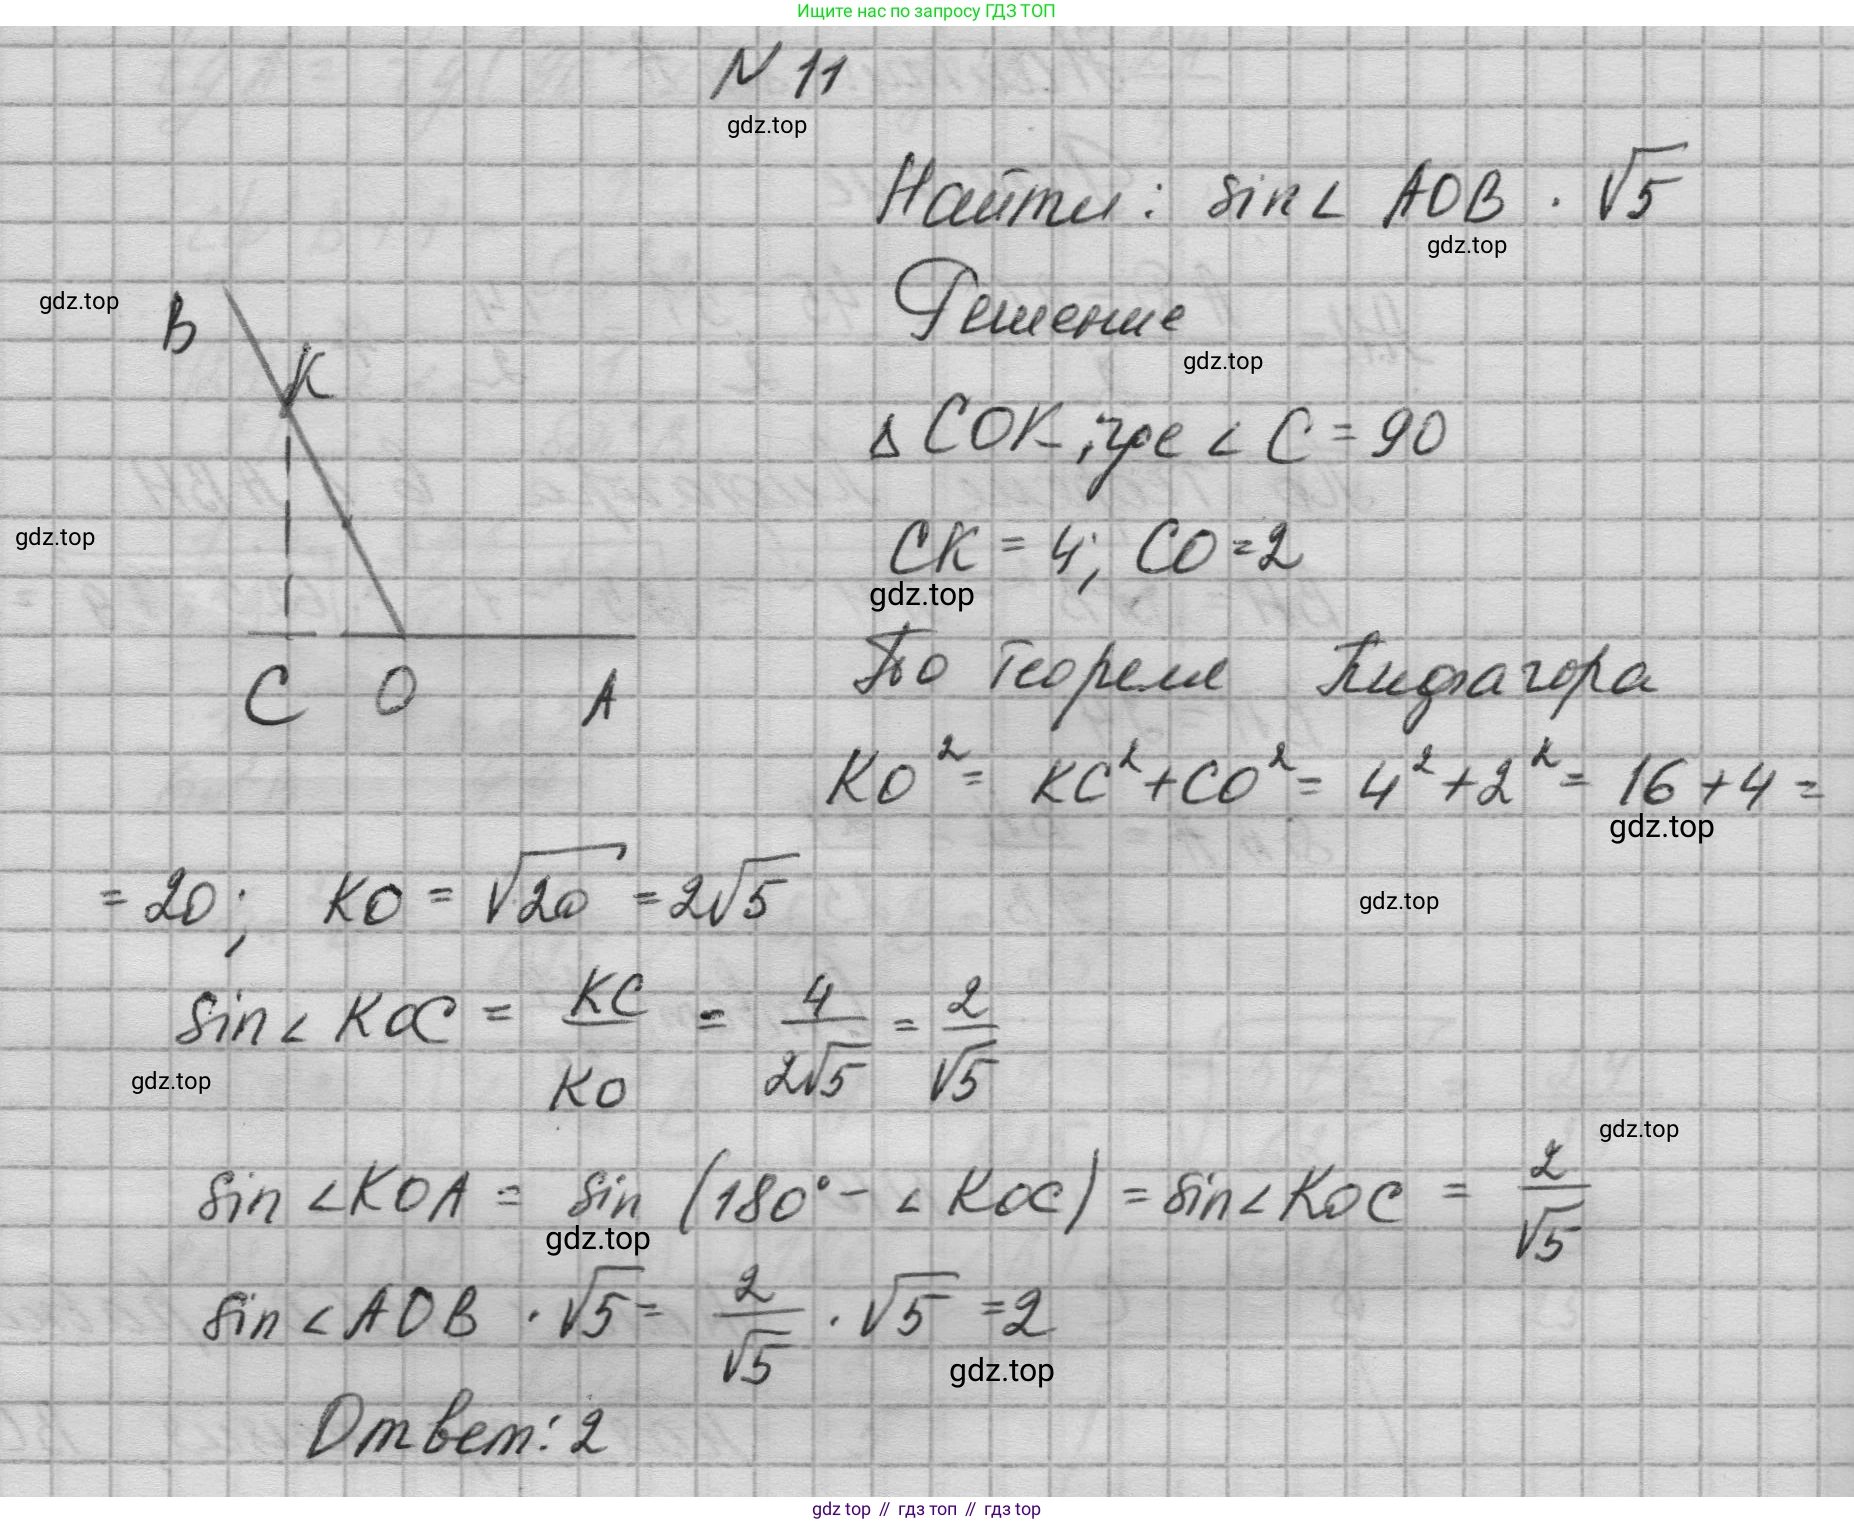 Ищите нас по запросу ГДЗ ТОП
N 11
gdz.top
Найти: sin∠ AOB · √5
gdz.top
Решение
gdz.top
B
gdz.top
K
Δ COK, где ∠ C = 90
gdz.top
CK = 4; CO = 2
gdz.top
По теореме Пифагора
C O A
KO² = KC² + CO² = 4² + 2² = 16 + 4 =
gdz.top
= 20; KO = √20 = 2√5
gdz.top
sin∠ KOC = KC/KO = 4/2√5 = 2/√5
gdz.top
gdz.top
sin ∠KOA = sin (180° - ∠ KOC) = sin∠ KOC = 2/√5
gdz.top
sin ∠ AOB · √5 = 2/√5 · √5 = 2
gdz.top
Ответ: 2
gdz top // гдз топ // gdz top